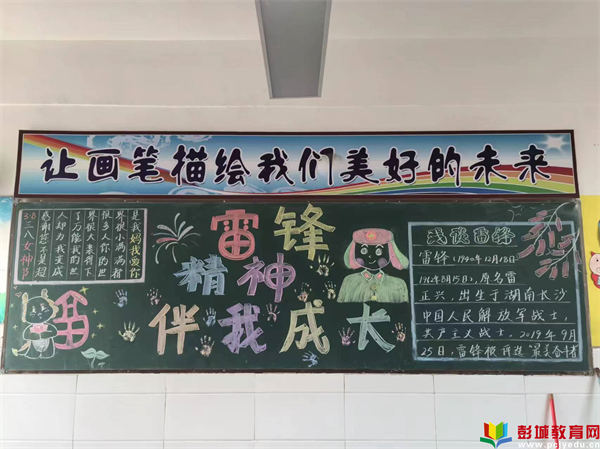 让画笔描绘我们美好的未来
3.8三八女神节
感谢您不是超
人却为我变成
了万能我的世
界很大 得下
很多人你的世
界很小满满都
是我妈我 你
雷锋
精神
伴我成长
雷锋
雷锋（1940年12月18日-
1962年8月15日），原名雷
正兴，出生于湖南长沙
中国人民解放军战士，
共产主义战士，2019年9月
25日，雷锋被评选“最美奋斗者
彭城教育网
www.pcjyedu.com